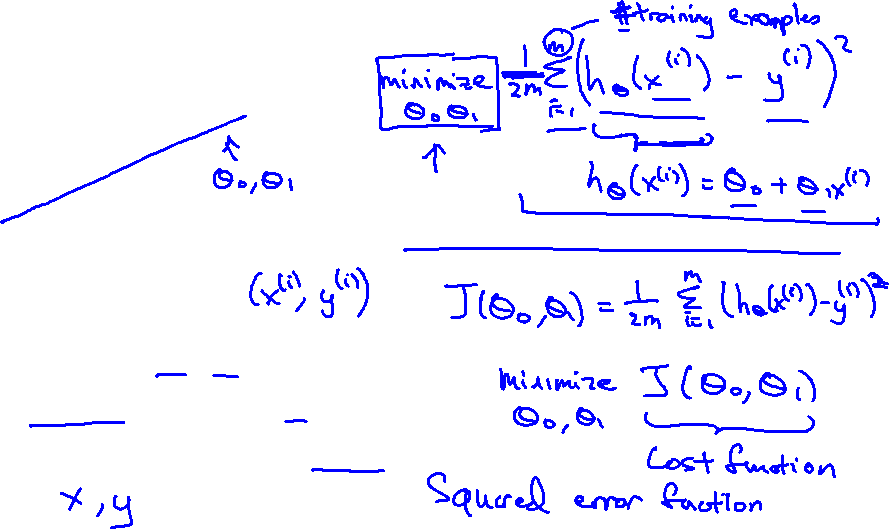 #training examples
minimize θ₀ θ₁ 1/2m Σᵢ₌₁ᵐ (hθ(x⁽ⁱ⁾) - y⁽ⁱ⁾)²
θ₀, θ₁
hθ(x⁽ⁱ⁾) = θ₀ + θ₁x⁽ⁱ⁾
(x⁽ⁱ⁾, y⁽ⁱ⁾)
J(θ₀, θ₁) = 1/2m Σᵢ₌₁ᵐ (hθ(x⁽ⁱ⁾) - y⁽ⁱ⁾)²
minimize θ₀, θ₁ J(θ₀, θ₁)
Cost function
x, y
Squared error function